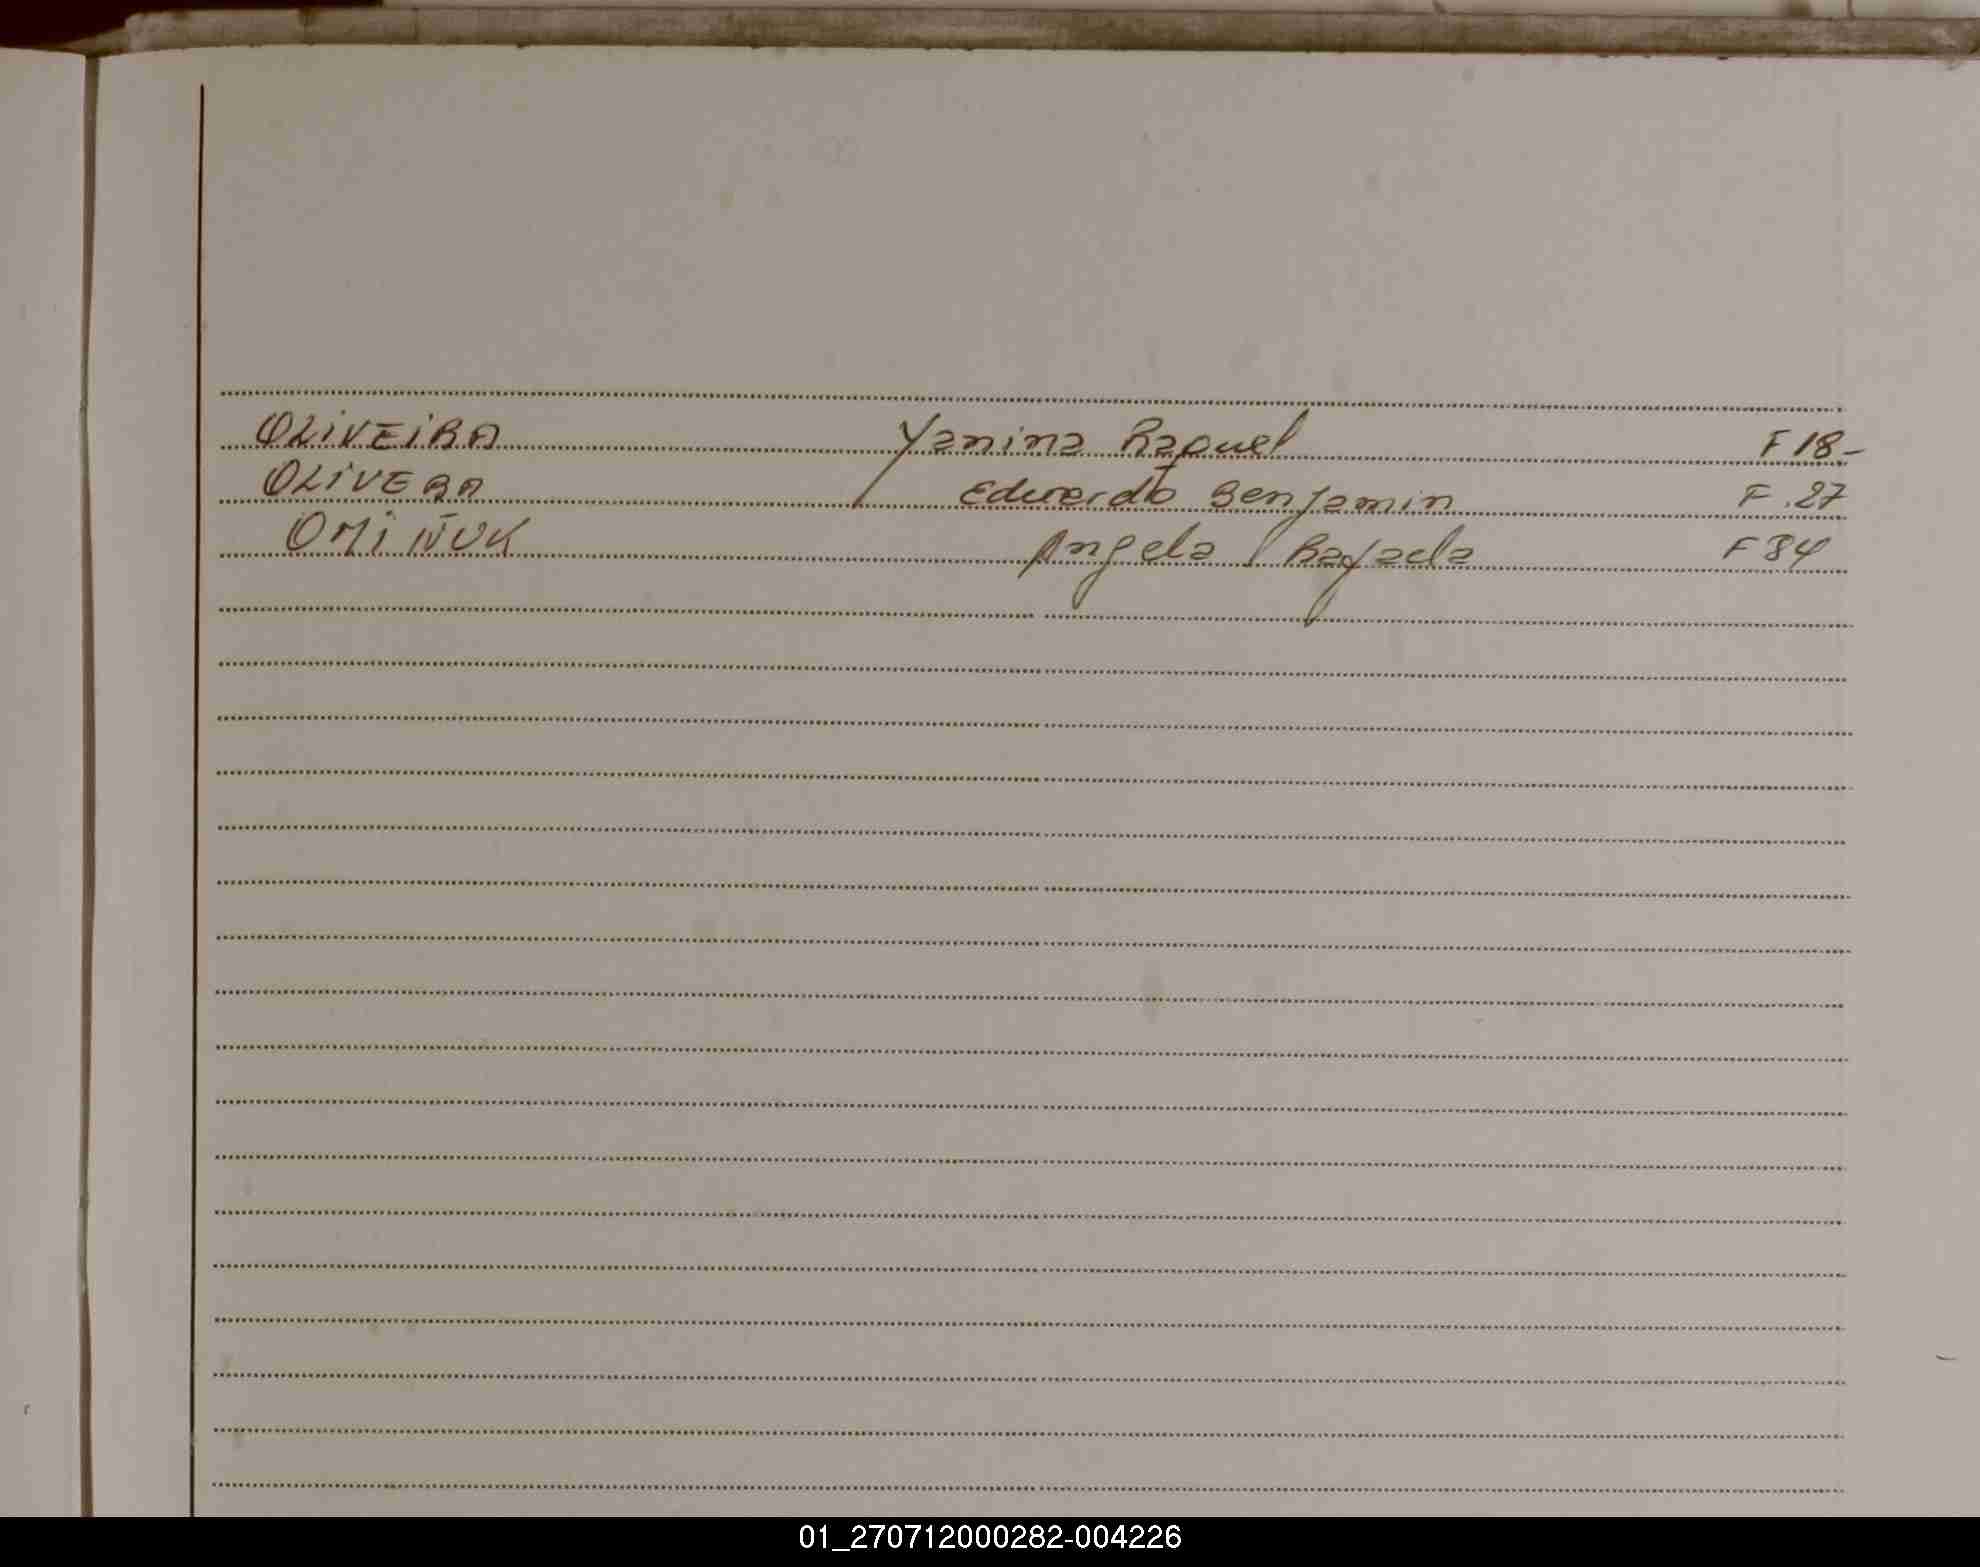 OLIVEIRA Yanina Raquel F 18-
OLIVERA Eduardo Benjamin F. 27
OMIÑUK Angela Rafaela F 84
01_270712000282-004226